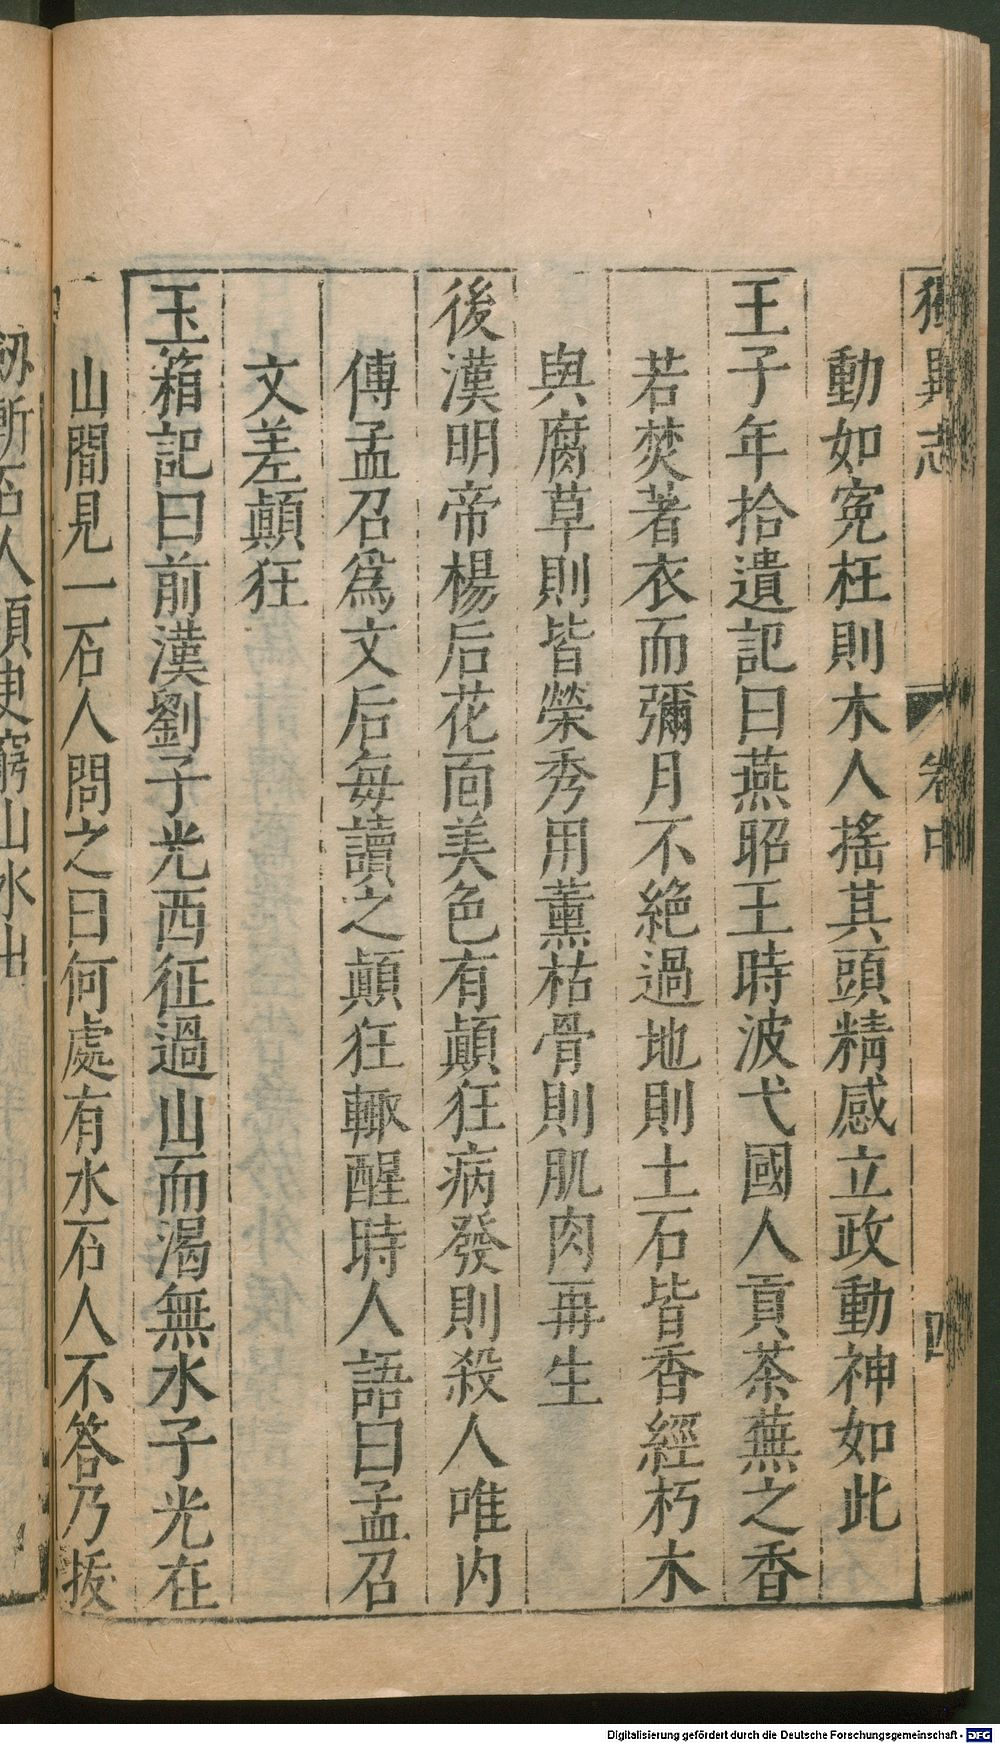 獨異志 卷中 四
動如寃枉則木人搖其頭精感立政動神如此
王子年拾遺記曰燕昭王時波弋國人貢茶蕪之香
若焚著衣而彌月不絶過地則土石皆香經朽木
與腐草則皆榮秀用薰枯骨則肌肉再生
後漢明帝楊后花面美色有顛狂病發則殺人唯内
傅孟召爲文后每讀之顛狂輙醒時人語曰孟召
文差顛狂
玉箱記曰前漢劉子光西征過山而渴無水子光在
山間見一石人問之曰何處有水石人不答乃拔
劒斬石人頭叓窮山水出
Digitalisierung gefördert durch die Deutsche Forschungsgemeinschaft - DFG